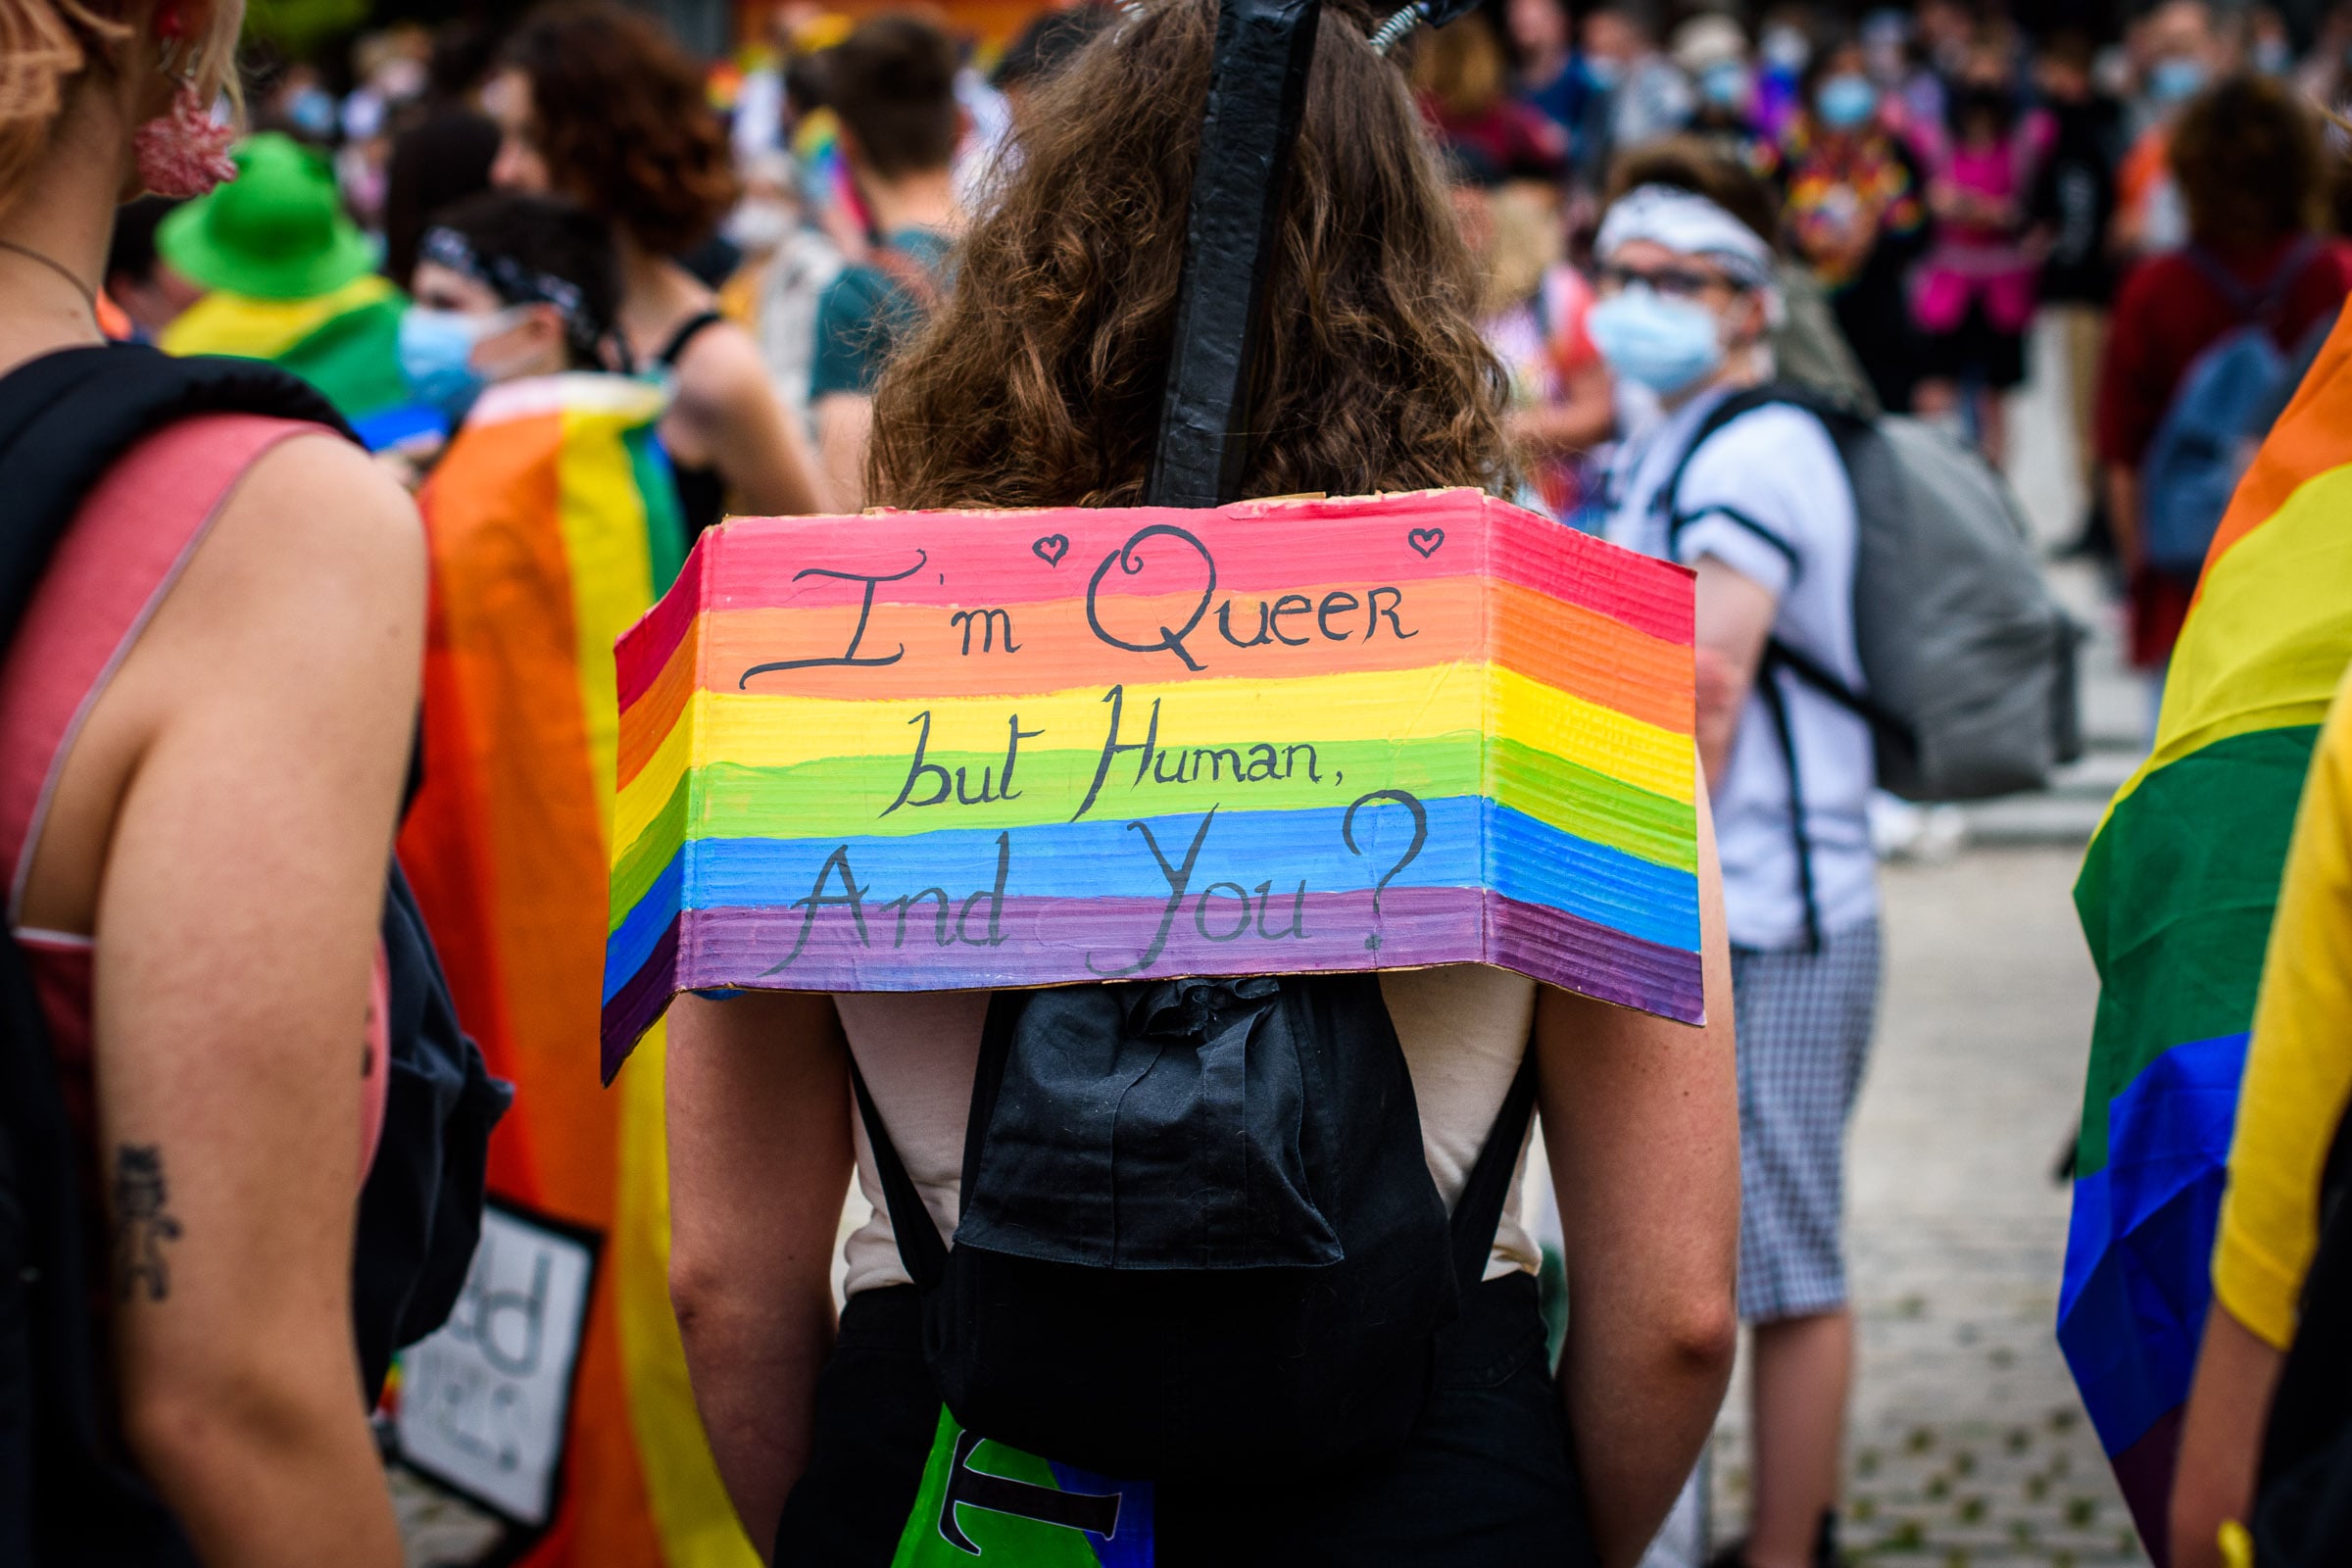 I'm Queer
but Human,
And You?